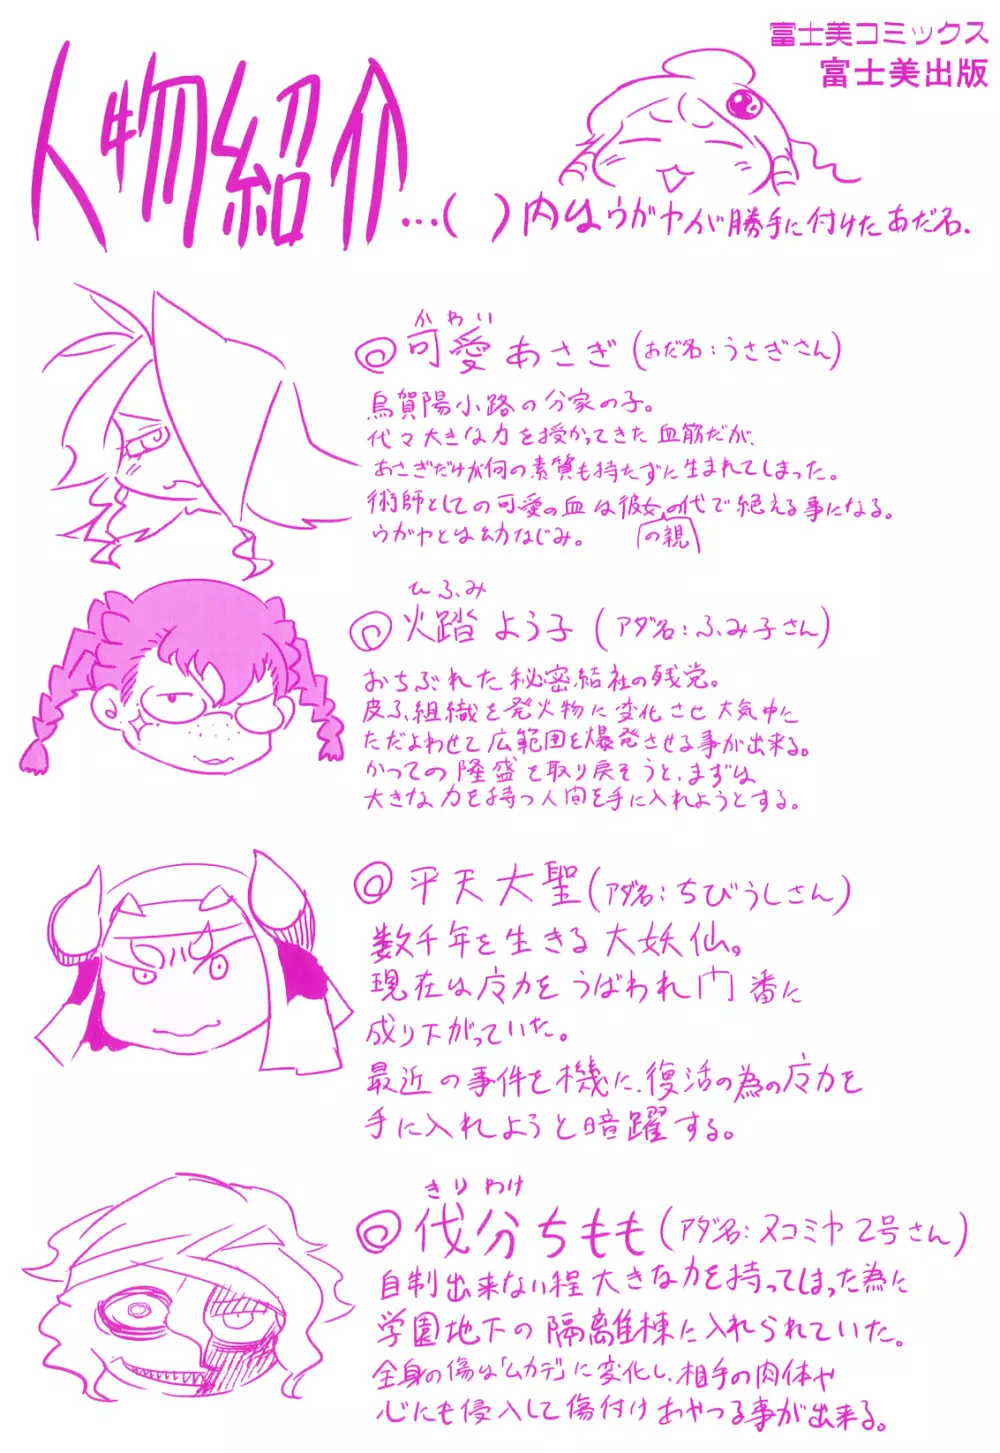 富士美コミックス
富士美出版
人物紹介…( )内はウガヤが勝手に付けたあだ名.
かわい
◎可愛あさぎ(あだ名:うさぎさん)
烏賀陽小路の分家の子。
代々大きな力を授かってきた血筋だが、
あさぎだけが何の素質も持たずに生まれてしまった。
術師としての可愛の血は彼女の代で絶える事になる。
の親
ウガヤとは幼なじみ。
ひふみ
◎火踏よう子(アダ名:ふみ子さん)
おちぶれた秘密結社の残党。
皮ふ組織を発火物に変化させ大気中に
ただよわせて広範囲を爆発させる事が出来る。
かつての隆盛を取り戻そうと、まずは
大きな力を持つ人間を手に入れようとする。
◎平天大聖(アダ名:ちびうしさん)
数千年を生きる大妖仙。
現在は力をうばわれ門番に
成り下がっていた。
最近の事件を機に、復活の為の力を
手に入れようと暗躍する。
きりわけ
◎伐分ちもも(アダ名:ヌコミヤ2号さん)
自制出来ない程大きな力を持ってしまった為に
学園地下の隔離棟に入れられていた。
全身の傷は「ムカデ」に変化し、相手の肉体や
心にも侵入して傷付けあやつる事が出来る。